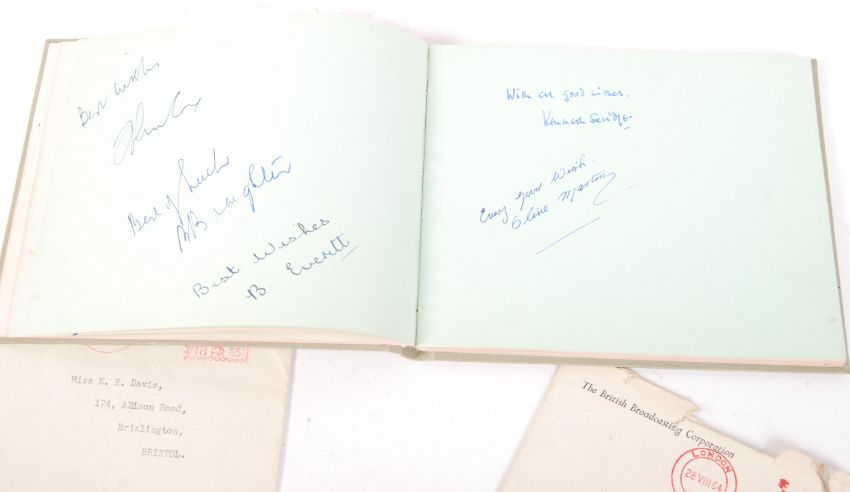 Best wishes
Best of Luck
Best Wishes
B. Everitt
With all good wishes.
Kenneth Savidge
Every good Wish.
Olive Martin
Miss E. E. Davis,
174, Allison Road,
Brislington,
BRISTOL.
The British Broadcasting Corporation
LONDON
28 VIII 54